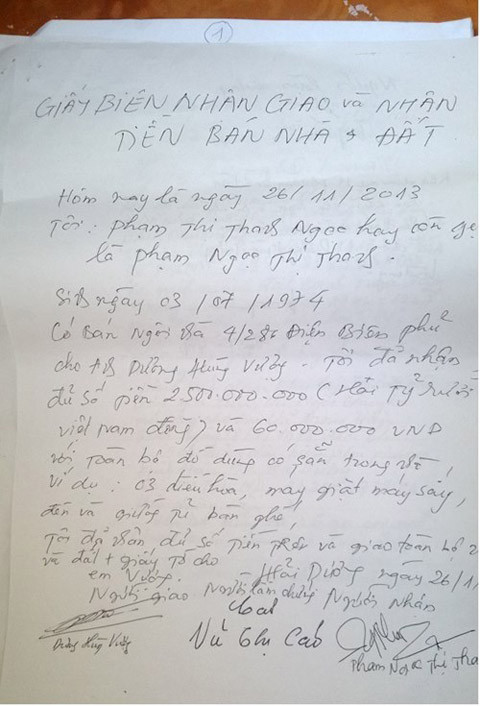 1
GIẤY BIÊN NHẬN GIAO và NHẬN
TIỀN BÁN NHÀ & ĐẤT
Hôm nay là ngày 26/11/2013
Tôi: phạm Thị Thanh Ngọc hay còn gọi
là phạm Ngọc Thị Thanh.
Sinh ngày 03/07/1974
Có bán ngôi nhà 4/286 Điện Biên phủ
cho anh Dương Hùng Vương. Tôi đã nhận
đủ số tiền 2500.000.000 (Hai Tỷ rưỡi
việt nam đồng) và 60.000.000 VND
với toàn bộ đồ dùng có sẵn trong nhà,
ví dụ: 03 điều hòa, máy giặt máy sấy,
đèn và giường tủ bàn ghế,
Tôi đã nhận đủ số tiền trên và giao toàn bộ
và đất + giấy tờ cho
em Vương. Hải Dương ngày 26/1
Người giao Người làm chứng Người Nhận
Dương Hùng Vương Vũ Thị Cab phạm Ngọc Thị Tha